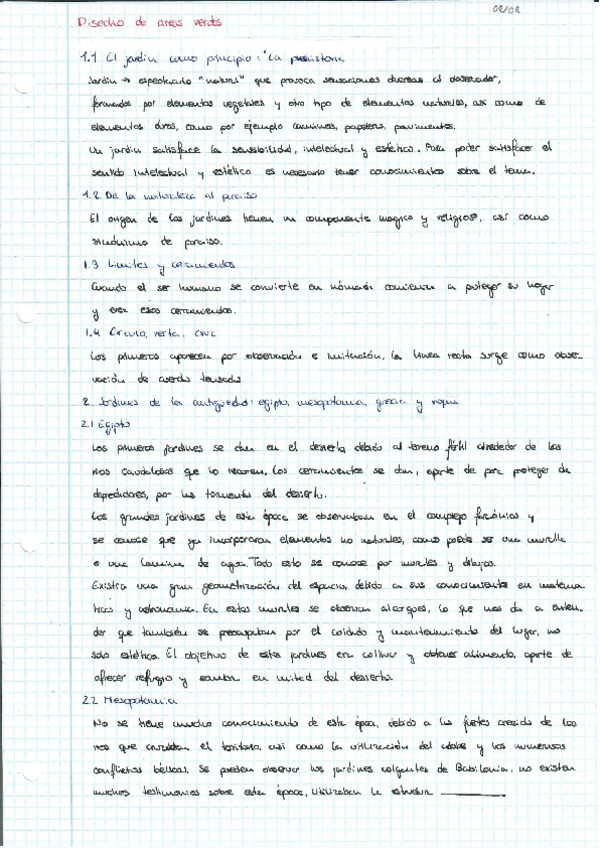 02/02
Diseño de areas verdes
1.1 El jardín como principio: La prehistoria
Jardín → espectáculo "natural" que provoca sensaciones diversas al observador,
formados por elementos vegetales y otro tipo de elementos naturales, así como de
elementos duros, como por ejemplo caminos, papeleras, pavimentos.
Un jardín satisface la sensibilidad, intelectual y estética. Para poder satisfacer el
sentido intelectual y estético es necesario tener conocimientos sobre el tema.
1.2 De la naturaleza al paraíso
El origen de los jardines tienen un componente mágico y religioso, así como
sinónimo de paraíso.
1.3 Limites y cerramientos
Cuando el ser humano se convierte en nómada comienza a proteger su hogar
y crea esos cerramientos.
1.4 Círculo, recta, cruz
Los primeros aparecen por observación e imitación, la línea recta surge como obser
vación de cuerda tensada
2. Jardines de la antigüedad: egipto, mesopotamia, grecia y roma
2.1 Egipto
Los primeros jardines se dan en el desierto debido al terreno fértil alrededor de los
ríos caudalosos que lo recorren, Los cerramientos se dan, aparte de para proteger de
depredadores, por las tormentas del desierto.
Los grandes jardines de esta época se observaban en el complejo faraónico y
se conoce que ya incorporaran elementos no naturales, como puede ser una muralla
o una lamina de agua. Todo esto se conoce por murales y dibujos.
Existía una gran geometrización del espacio, debido a sus conocimientos en matemá
ticas y astronomía. En estos murales se observan alcorques, lo que nos da a enten-
der que también se preocupaban por el cuidado y mantenimiento del lugar, no
solo estético. El objetivo de estos jardines era cultivar y obtener alimento, aparte de
ofrecer refugio y sombra en mitad del desierto.
2.2 Mesopotamia
No se tiene mucho conocimiento de esta época, debido a las fuertes crecidas de los
ríos que el territorio, así como la utilización del adobe y los numerosos
conflictos bélicos. Se pueden observar los jardines colgantes de Babilonia, no existen
muchos testimonios sobre esta época, utilizaban la